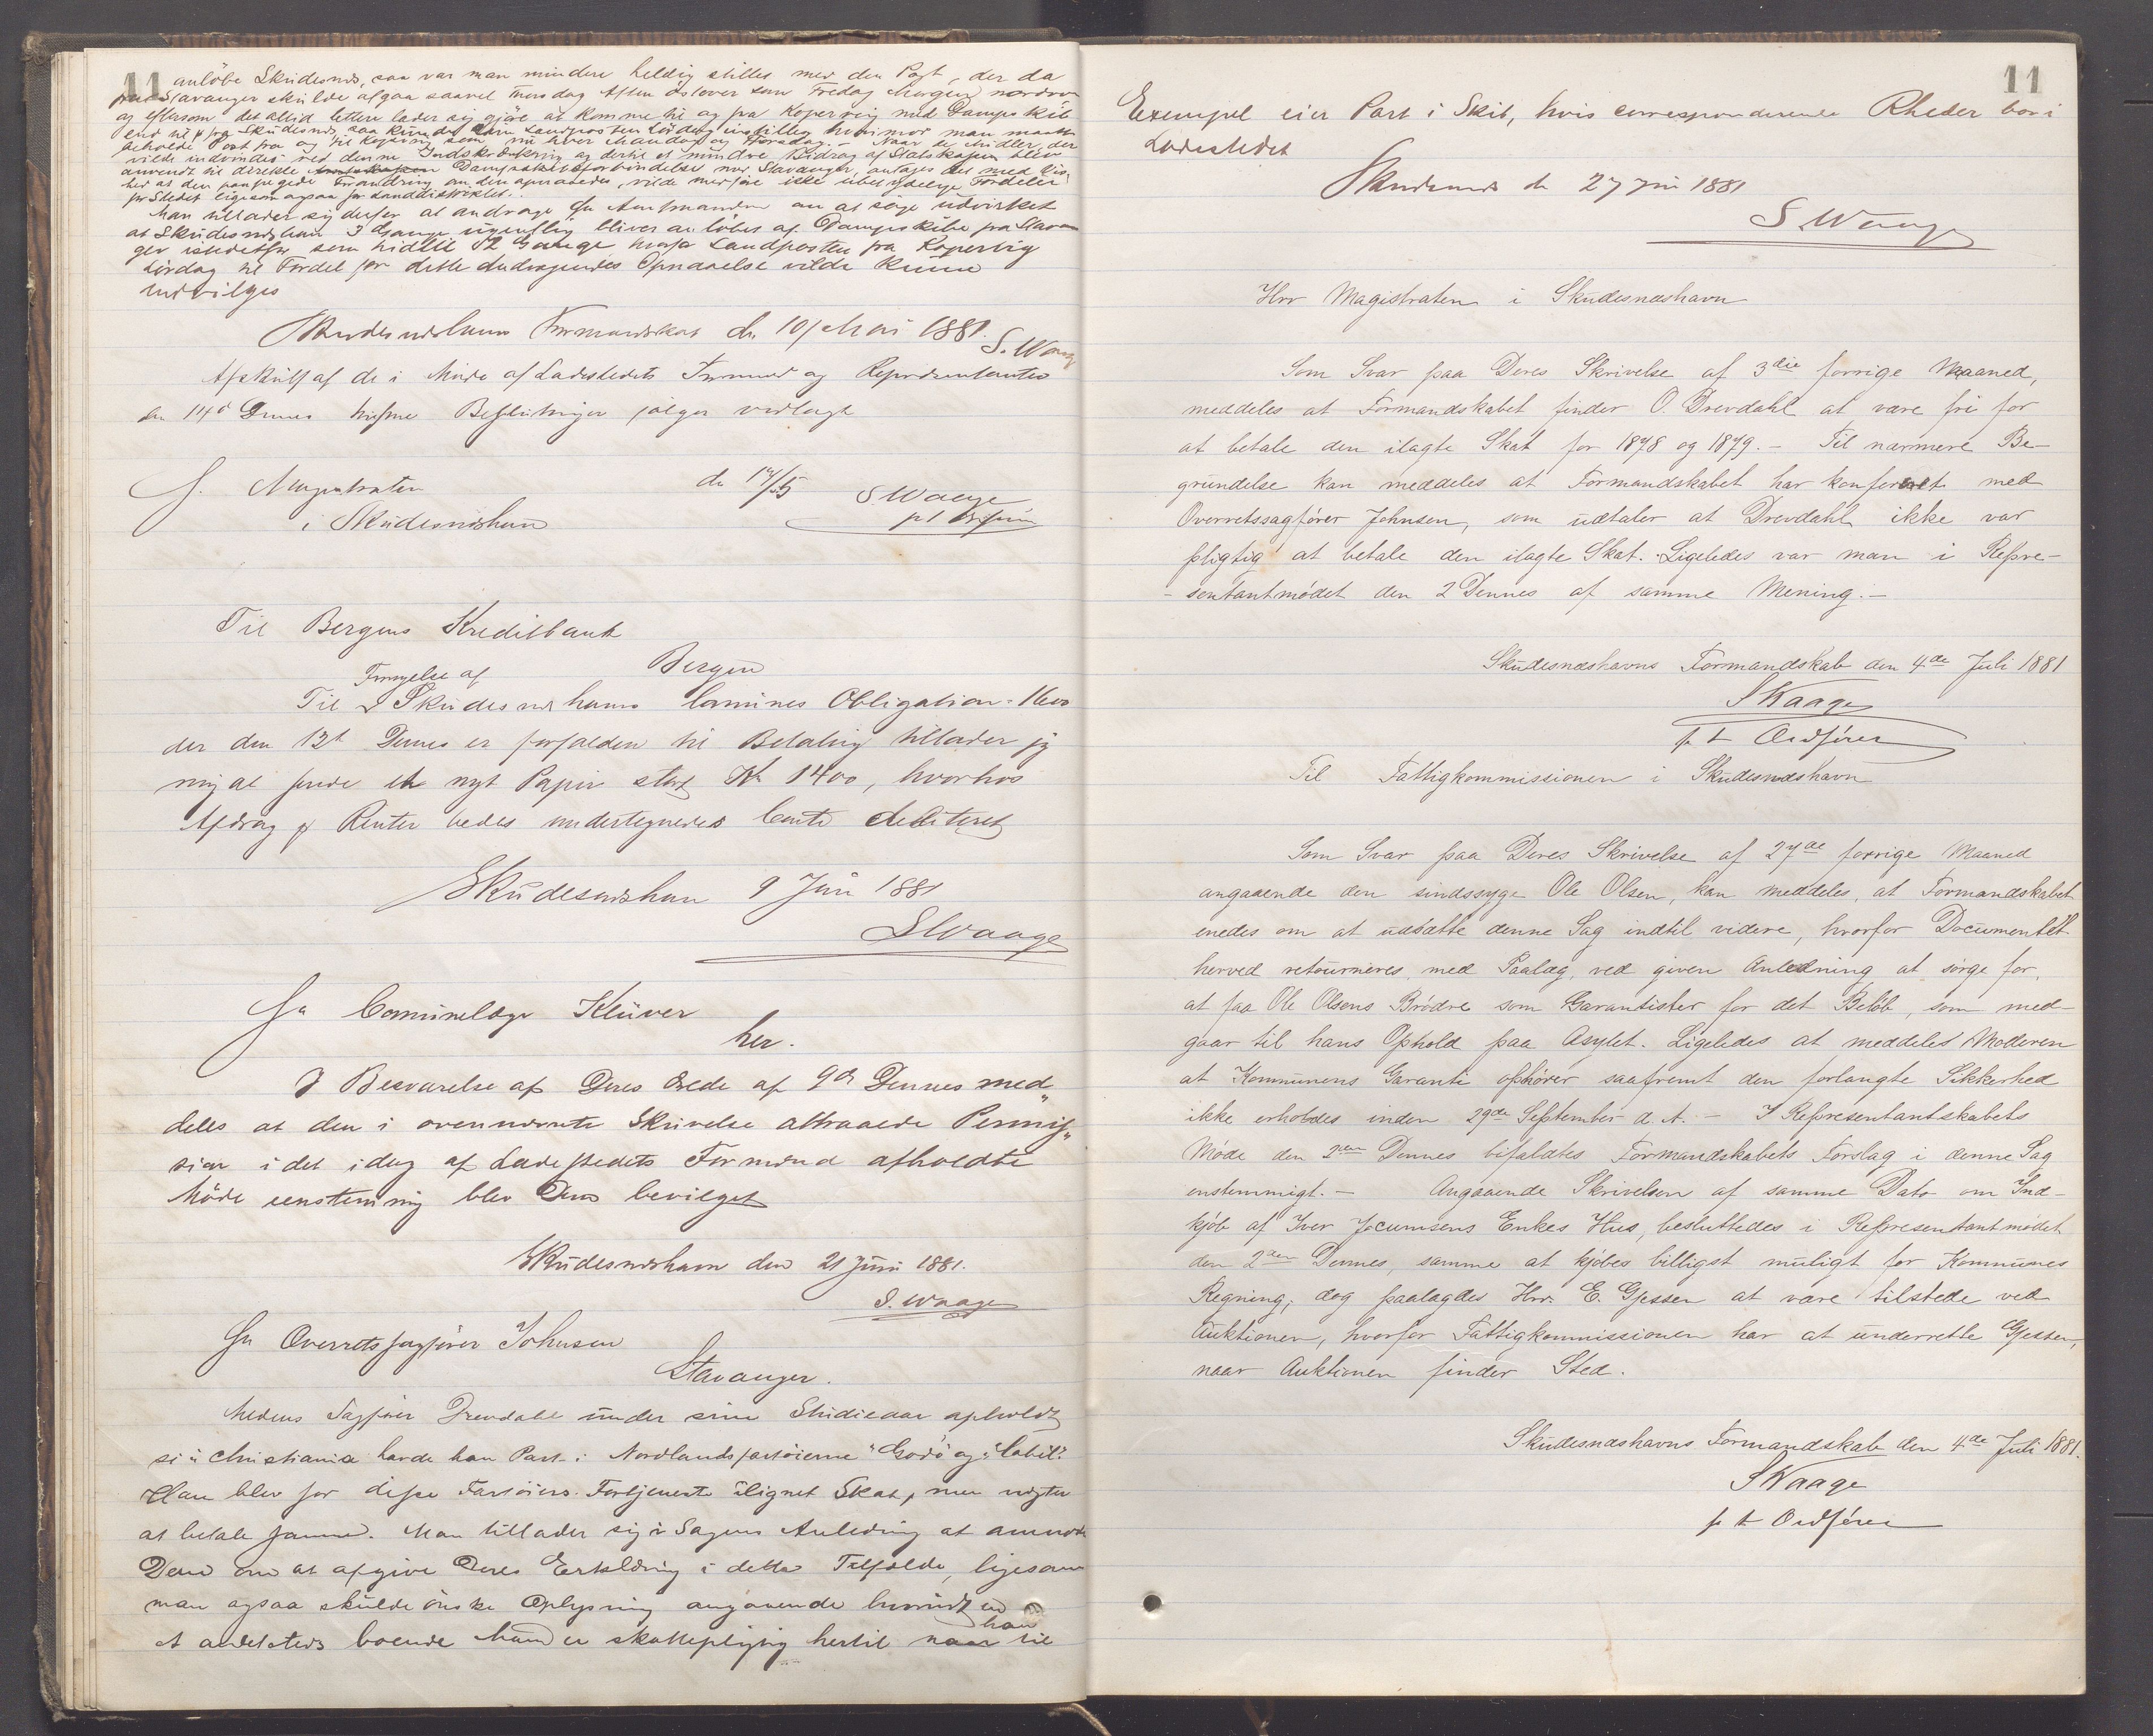 11
anløbe Skudesnæs, saa var man mindre heldig stillet med den Post, der da
fra Stavanger skulde afgaa saavel Torsdag Aften som Fredag Morgen nordover
og eftersom det altid lettere lader sig gjøre at komme til og fra Kopervig med Dampskib
end til & fra Skudesnæs, saa kunde Landposten Lørdag indstilles hvorimod man maatte
beholde Post fra og til Kopervig som nu hver Mandag og Torsdag. - Naar de Midler, der
vilde indvindes ved denne Indskrænkning og dertil et mindre Bidrag af Statskassen blev
anvendt til direkte Dampskibsforbindelse med Stavanger, antages det med Vis-
hed at den paapegede Forandring vilde medføre ikke ubetydelige Fordele
for Stedet ligesom ogsaa for Landdistriktet.
Man tillader sig derfor at andrage Hr Amtmanden om at søge udvirket
at Skudesnæshavn 3 Gange ugentlig bliver anløbet af Dampskibe fra Stavan
ger istedetfor som hidtil 2 Gange Landposten fra Kopervig
Lørdag til Fordel for dette Andragendes Opnaaelse vilde kunne
inddrages
Skudesnæshavns Formandskab den 10 Mai 1881.
S. Waage
Afskrift af de i Møde af Ladestedets Formænd og Repræsentanter
den 14d Dennes Beslutninger følger vedlagt
Hr. Magistraten den 17/5
i Skudesnæshavn S Waage
p t Ordfører
Til Bergens Kreditbank
Bergen
Fornyelse af
Til Skudesnæshavns Comunes Obligation 1600
der den 13d Dennes er forfalden til Betaling tillader jeg
mig at sende et nyt Papir stort Kr 1400, hvorhos
Afdrag & Renter bedes undertegnedes Conto debiteret
Skudesnæshavn 9 Juni 1881
S Waage
Hr Comunelæge Klüver
her.
I Besvarelse af Deres Ærede af 9de Dennes med-
deles at den i ovennævnte Skrivelse attraaede Permis-
sion i det idag af Ladestedets Formænd afholdte
Møde eenstemmig blev Dem bevilget
Skudesnæshavn den 21 Juni 1881.
S. Waage
Hr Overretssagfører Johnsen
Stavanger.
Medens Sagfører Drevdahl under sine Studieaar opholdt
sig i Christiania havde han Part i Nordlandsfartøierne "Godø" og "Cabil."
Han blev for disse Fartøiers Fortjeneste ilignet Skat, men nægter
at betale samme. Man tillader sig i Sagens Anledning at anmode
Dem om at afgive Deres Erklæring i dette Tilfælde, ligesom
man ogsaa skulde ønske Oplysning angaaende hvorvidt en
et andetsteds boende Mand er skattepligtig hertil naar han til
11
Exempel eier Part i Skib, hvis corresponderende Rheder bor i
Ladestedet
Skudesnæs den 27 Juni 1881
S. Waage
Hrr Magistraten i Skudesnæshavn
Som Svar paa Deres Skrivelse af 3die forrige Maaned,
meddeles at Formandskabet finder O. Drevdahl at være fri for
at betale den ilagte Skat for 1878 og 1879. - Til nærmere Be-
grundelse kan meddeles at Formandskabet har konfereret med
Overretssagfører Johnsen, som udtaler at Drevdahl ikke var
pligtig at betale den ilagte Skat. Ligeledes var man i Repre-
-sentantmødet den 2 Dennes af samme Mening. -
Skudesnæshavns Formandskab den 4de Juli 1881
S Waage
p t Ordfører
Til Fattigkommissionen i Skudesnæshavn
Som Svar paa Deres Skrivelse af 27de forrige Maaned
angaaende den sindssyge Ole Olsen, kan meddeles, at Formandskabet
enedes om at udsætte denne Sag indtil videre, hvorfor Documentet
herved retourneres med Paalæg, ved given Anledning at sørge for,
at faa Ole Olsens Brødre som Garantister for det Beløb, som med-
gaar til hans Ophold paa Asylet. Ligeledes at meddeles Moderen
at Kommunens Garanti ophører saafremt den forlangte Sikkerhed
ikke erholdes inden 29de September d. A. - I Representantskabets
Møde den 2den Dennes bifaldtes Formandskabets Forslag i denne Sag
enstemmigt. - Angaaende Skrivelsen af samme Dato om Ind-
kjøb af Iver Jocumsens Enkes Hus, besluttedes i Representantmødet
den 2den Dennes, samme at kjøbes billigst muligt for Kommunes
Regning; dog paalagdes Hrr. E. Gjessen at være tilstede ved
Auktionen, hvorfor Fattigkommissionen har at underrette Gjessen,
naar Auktionen finder Sted.
Skudesnæshavns Formandskab den 4de Juli 1881.
S Waage
p t Ordfører